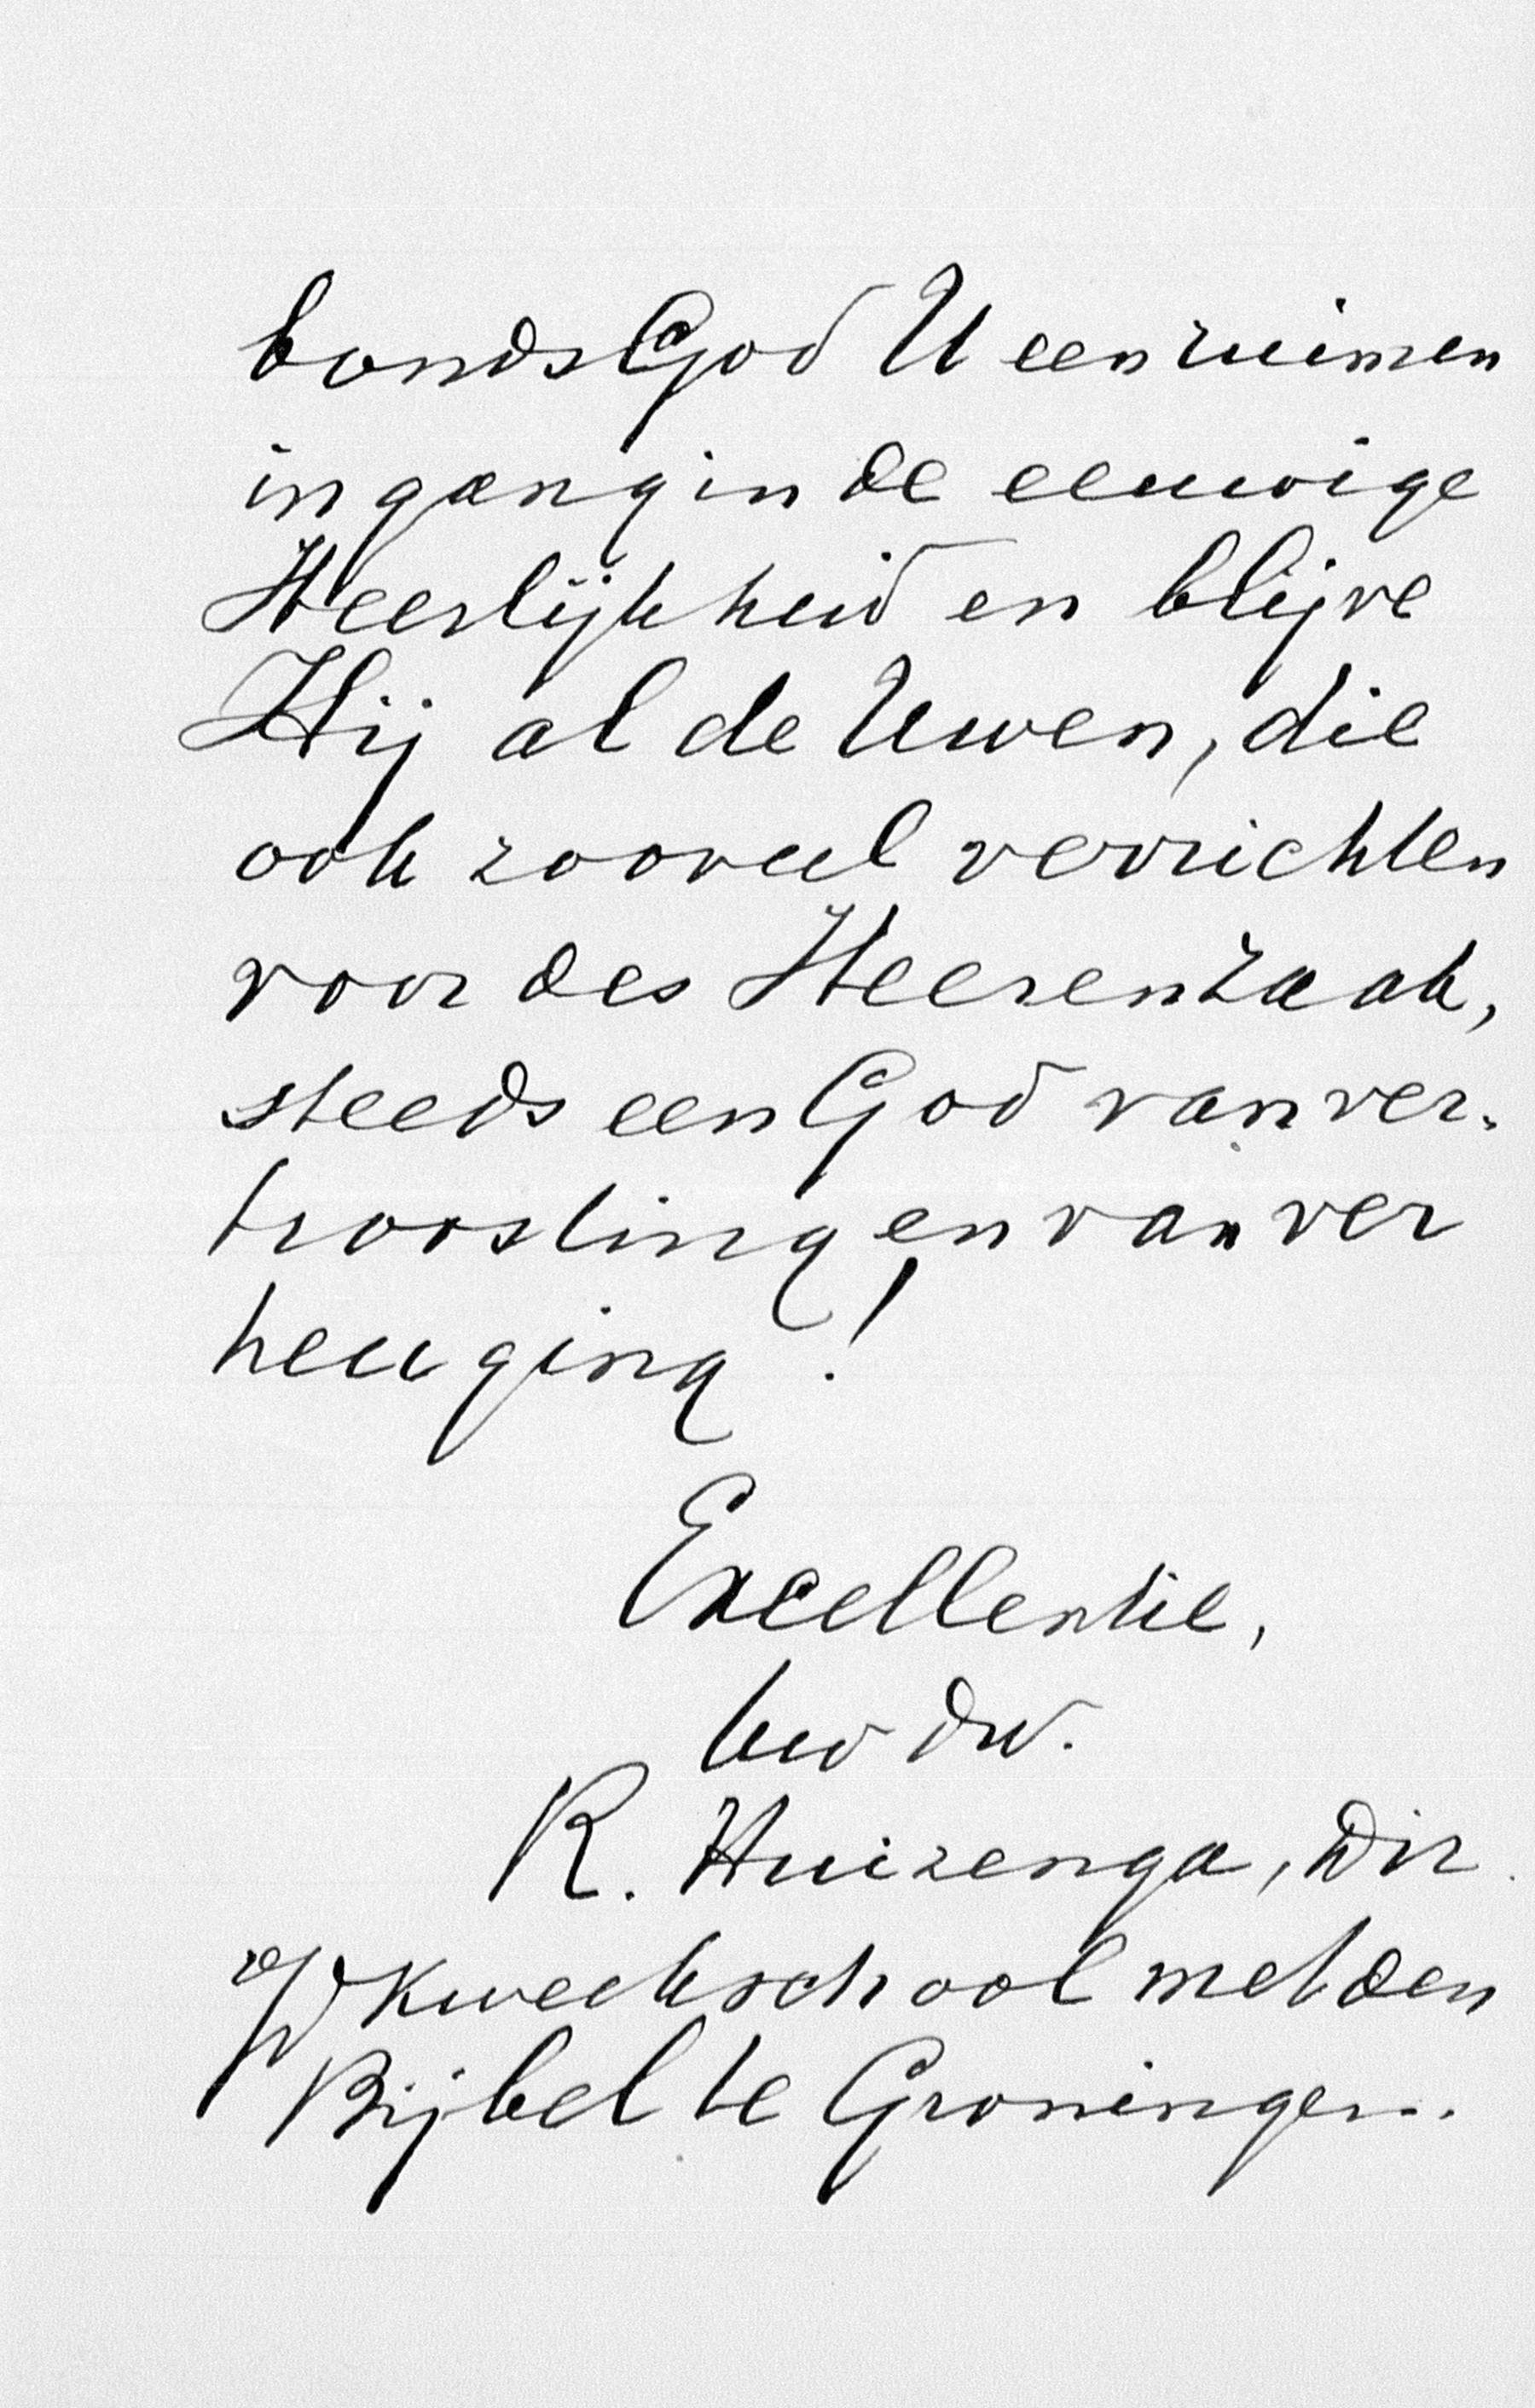 bonds God U een ruimen
ingang in de eeuwige
Heerlijkheid en blijve
Hij al de Uwen, die
ook zooveel verrichten
voor des Heeren zaak,
steeds een God van ver-
troosting en van ver
heuging!
Excellentie,
Uw dw.
R. Huizenga, Dir.
v/d Kweekschool met den
Bijbel te Groningen.